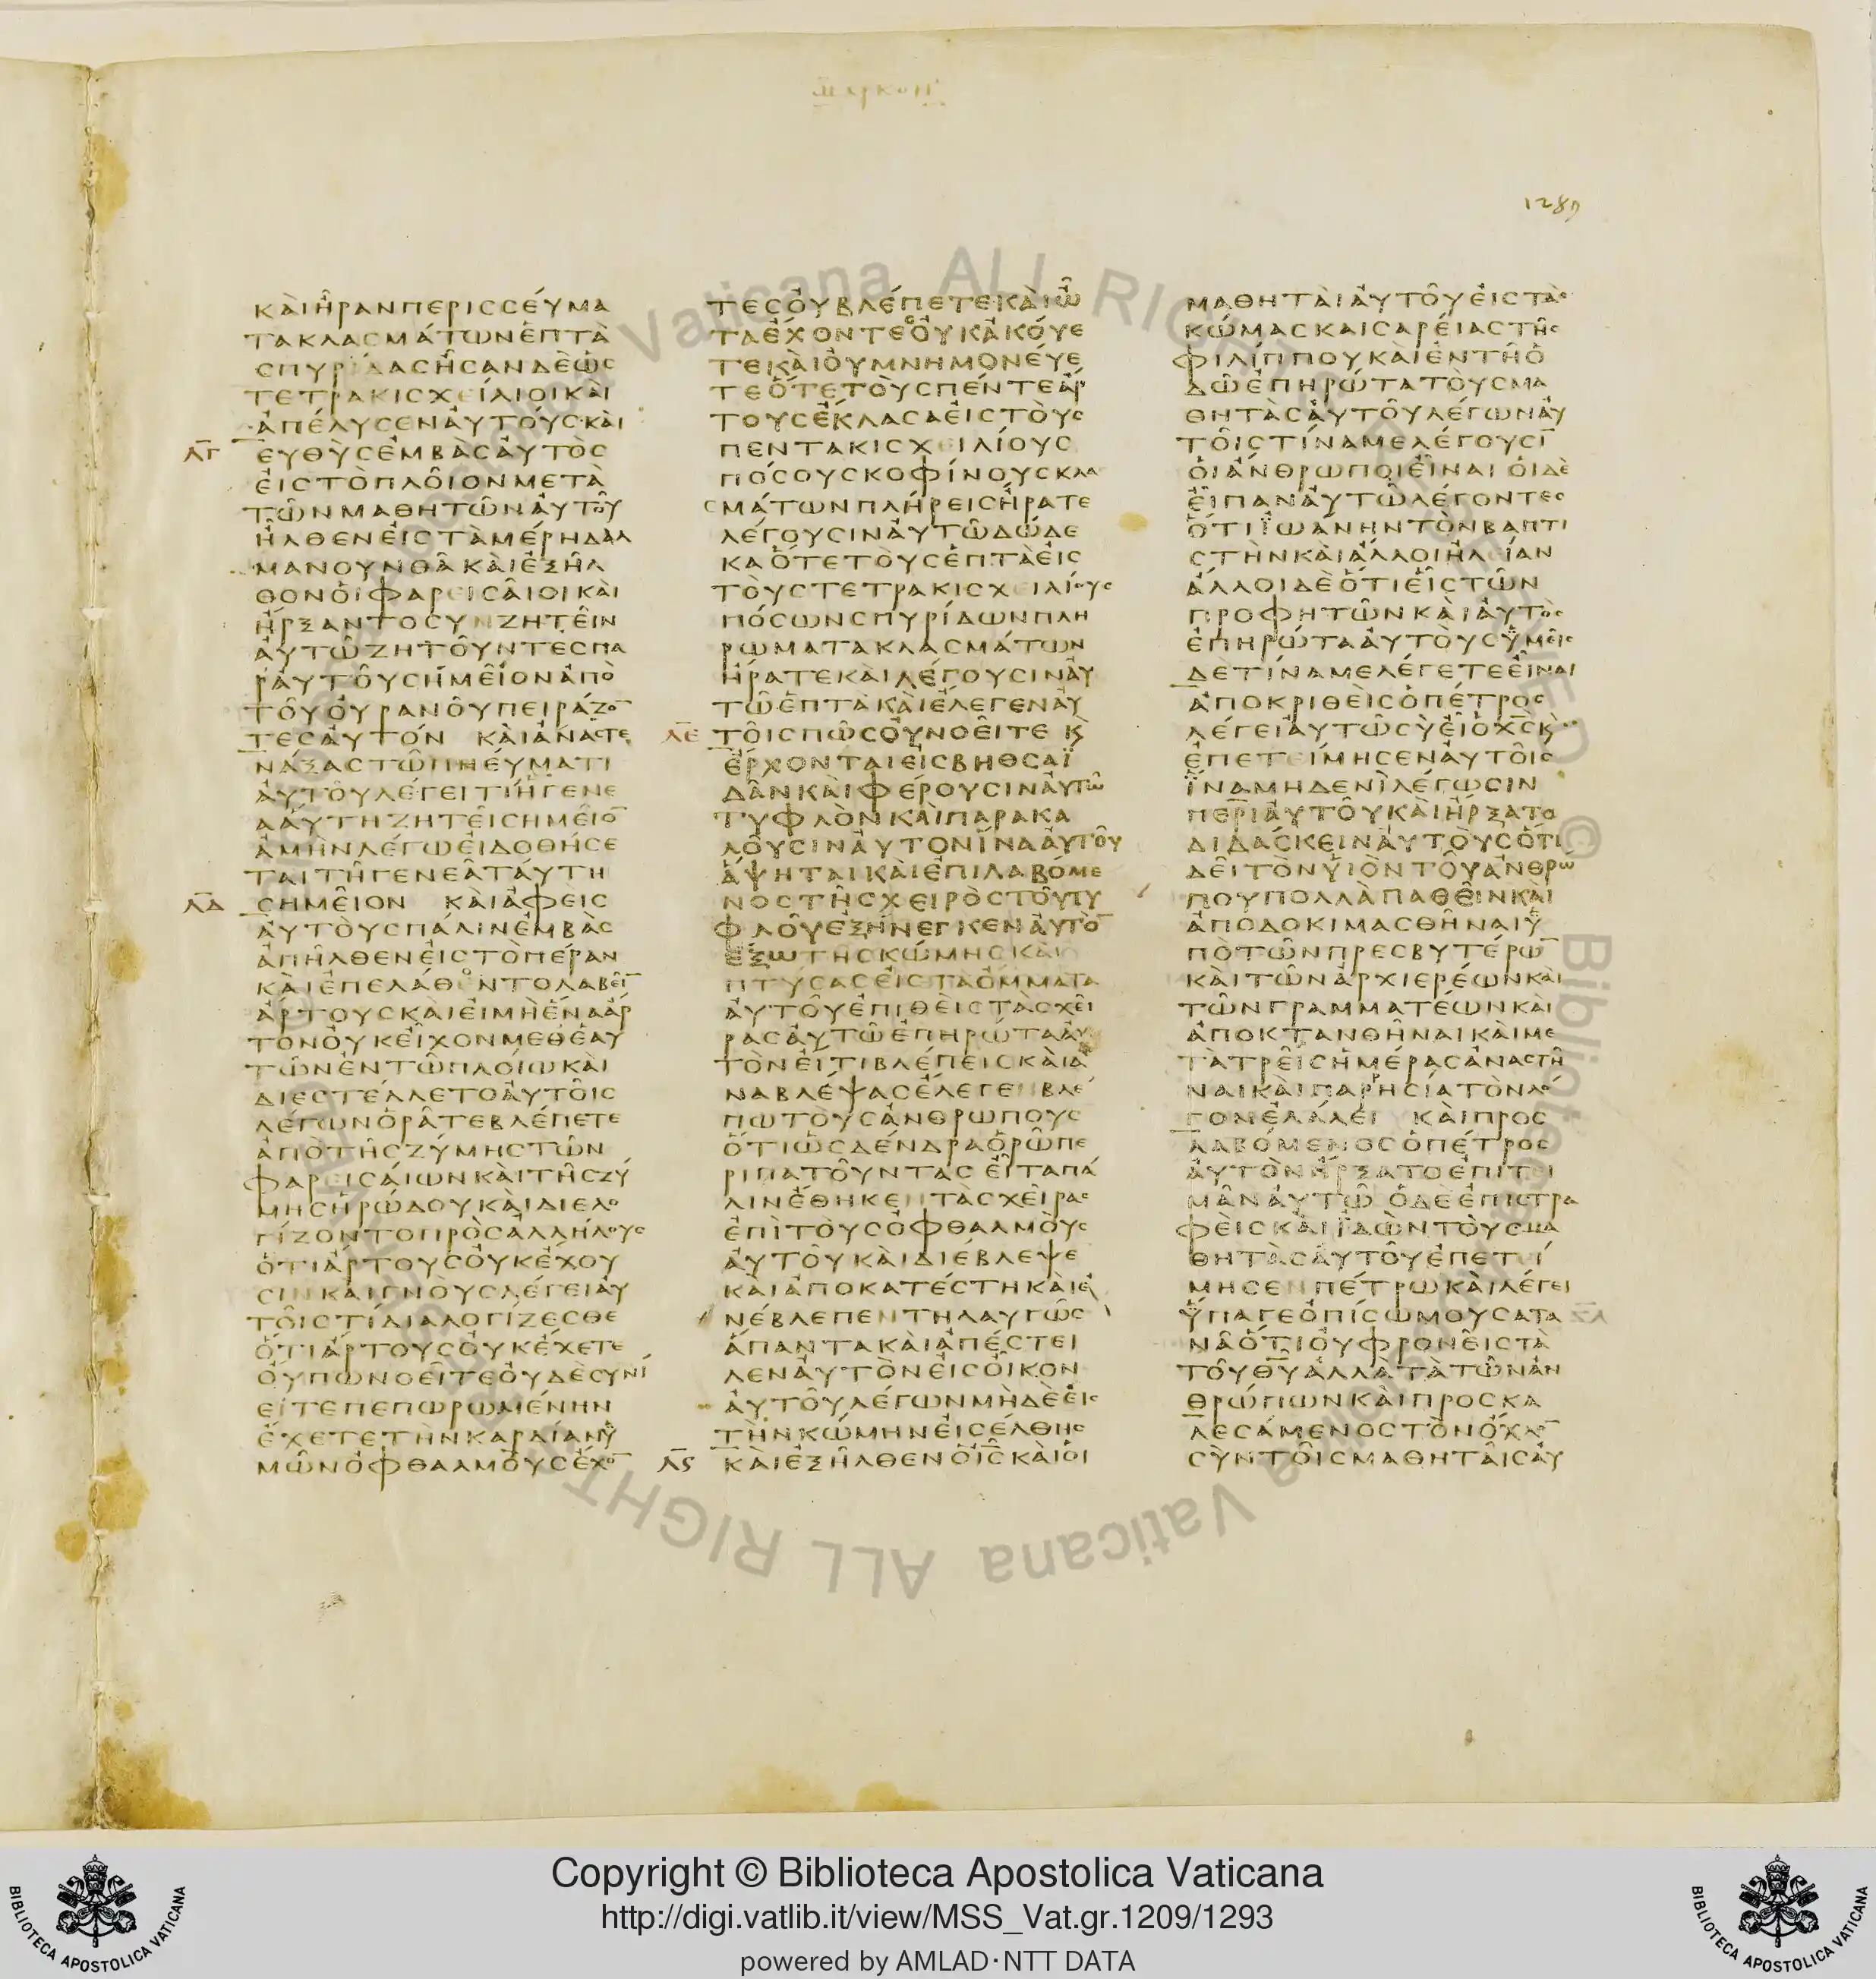 ΜΑΡΚΟΝ
1289
ΚΑΙΗΡΑΝΠΕΡΙΣΣΕΥΜΑ
ΤΑΚΛΑΣΜΑΤΩΝΕΠΤΑ
ΣΠΥΡΙΔΑΣΗΣΑΝΔΕΩΣ
ΤΕΤΡΑΚΙΣΧΕΙΛΙΟΙΚΑΙ
ΑΠΕΛΥΣΕΝΑΥΤΟΥΣΚΑΙ
ΛΓ ΕΥΘΥΣΕΜΒΑΣΑΥΤΟΣ
ΕΙΣΤΟΠΛΟΙΟΝΜΕΤΑ
ΤΩΝΜΑΘΗΤΩΝΑΥΤΟΥ
ΗΛΘΕΝΕΙΣΤΑΜΕΡΗΔΑΛ
ΜΑΝΟΥΝΘΑΚΑΙΕΞΗΛ
ΘΟΝΟΙΦΑΡΕΙΣΑΙΟΙΚΑΙ
ΗΡΞΑΝΤΟΣΥΝΖΗΤΕΙΝ
ΑΥΤΩΖΗΤΟΥΝΤΕΣΠΑ
ΡΑΥΤΟΥΣΗΜΕΙΟΝΑΠΟ
ΤΟΥΟΥΡΑΝΟΥΠΕΙΡΑΖΟ¯
ΤΕΣΑΥΤΟΝ ΚΑΙΑΝΑΣΤΕ
ΝΑΞΑΣΤΩΠΝΕΥΜΑΤΙ
ΑΥΤΟΥΛΕΓΕΙΤΙΗΓΕΝΕ
ΑΑΥΤΗΖΗΤΕΙΣΗΜΕΙΟ¯
ΑΜΗΝΛΕΓΩΕΙΔΟΘΗΣΕ
ΤΑΙΤΗΓΕΝΕΑΤΑΥΤΗ
ΛΔ ΣΗΜΕΙΟΝ ΚΑΙΑΦΕΙΣ
ΑΥΤΟΥΣΠΑΛΙΝΕΜΒΑΣ
ΑΠΗΛΘΕΝΕΙΣΤΟΠΕΡΑΝ
ΚΑΙΕΠΕΛΑΘΟΝΤΟΛΑΒΕΙ¯
ΑΡΤΟΥΣΚΑΙΕΙΜΗΕΝΑΑΡ
ΤΟΝΟΥΚΕΙΧΟΝΜΕΘΕΑΥ
ΤΩΝΕΝΤΩΠΛΟΙΩΚΑΙ
ΔΙΕΣΤΕΛΛΕΤΟΑΥΤΟΙΣ
ΛΕΓΩΝΟΡΑΤΕΒΛΕΠΕΤΕ
ΑΠΟΤΗΣΖΥΜΗΣΤΩΝ
ΦΑΡΕΙΣΑΙΩΝΚΑΙΤΗΣΖΥ
ΜΗΣΗΡΩΔΟΥΚΑΙΔΙΕΛΟ
ΓΙΖΟΝΤΟΠΡΟΣΑΛΛΗΛΟΥΣ
ΟΤΙΑΡΤΟΥΣΟΥΚΕΧΟΥ
ΣΙΝΚΑΙΓΝΟΥΣΛΕΓΕΙΑΥ
ΤΟΙΣΤΙΔΙΑΛΟΓΙΖΕΣΘΕ
ΟΤΙΑΡΤΟΥΣΟΥΚΕΧΕΤΕ
ΟΥΠΩΝΟΕΙΤΕΟΥΔΕΣΥΝΙ
ΕΙΤΕΠΕΠΩΡΩΜΕΝΗΝ
ΕΧΕΤΕΤΗΝΚΑΡΔΙΑΝΥ
ΜΩΝΟΦΘΑΛΜΟΥΣΕΧΟ¯
ΤΕΣΟΥΒΛΕΠΕΤΕΚΑΙΩ
ΤΑΕΧΟΝΤΕΣΟΥΚΑΚΟΥΕ
ΤΕΚΑΙΟΥΜΝΗΜΟΝΕΥΕ
ΤΕΟΤΕΤΟΥΣΠΕΝΤΕΑΡ
ΤΟΥΣΕΚΛΑΣΑΕΙΣΤΟΥΣ
ΠΕΝΤΑΚΙΣΧΕΙΛΙΟΥΣ
ΠΟΣΟΥΣΚΟΦΙΝΟΥΣΚΛΑ
ΣΜΑΤΩΝΠΛΗΡΕΙΣΗΡΑΤΕ
ΛΕΓΟΥΣΙΝΑΥΤΩΔΩΔΕ
ΚΑΟΤΕΤΟΥΣΕΠΤΑΕΙΣ
ΤΟΥΣΤΕΤΡΑΚΙΣΧΕΙΛΙΟΥΣ
ΠΟΣΩΝΣΠΥΡΙΔΩΝΠΛΗ
ΡΩΜΑΤΑΚΛΑΣΜΑΤΩΝ
ΗΡΑΤΕΚΑΙΛΕΓΟΥΣΙΝΑΥ
ΤΩΕΠΤΑΚΑΙΕΛΕΓΕΝΑΥ
ΛΕ ΤΟΙΣΠΩΣΟΥΝΟΕΙΤΕ Κ
ΕΡΧΟΝΤΑΙΕΙΣΒΗΘΣΑΪ
ΔΑΝΚΑΙΦΕΡΟΥΣΙΝΑΥΤΩ
ΤΥΦΛΟΝΚΑΙΠΑΡΑΚΑ
ΛΟΥΣΙΝΑΥΤΟΝΙΝΑΑΥΤΟΥ
ΑΨΗΤΑΙΚΑΙΕΠΙΛΑΒΟΜΕ
ΝΟΣΤΗΣΧΕΙΡΟΣΤΟΥΤΥ
ΦΛΟΥΕΞΗΝΕΓΚΕΝΑΥΤΟ¯
ΕΞΩΤΗΣΚΩΜΗΣΚΑΙ
ΠΤΥΣΑΣΕΙΣΤΑΟΜΜΑΤΑ
ΑΥΤΟΥΕΠΙΘΕΙΣΤΑΣΧΕΙ
ΡΑΣΑΥΤΩΕΠΗΡΩΤΑΑΥ
ΤΟΝΕΙΤΙΒΛΕΠΕΙΣΚΑΙΑ
ΝΑΒΛΕΨΑΣΕΛΕΓΕΝΒΛΕ
ΠΩΤΟΥΣΑΝΘΡΩΠΟΥΣ
ΟΤΙΩΣΔΕΝΔΡΑΟΡΩΠΕ
ΡΙΠΑΤΟΥΝΤΑΣ ΕΙΤΑΠΑ
ΛΙΝΕΘΗΚΕΝΤΑΣΧΕΙΡΑΣ
ΕΠΙΤΟΥΣΟΦΘΑΛΜΟΥΣ
ΑΥΤΟΥΚΑΙΔΙΕΒΛΕΨΕ
ΚΑΙΑΠΟΚΑΤΕΣΤΗΚΑΙΕ
ΝΕΒΛΕΠΕΝΤΗΛΑΥΓΩΣ
ΑΠΑΝΤΑΚΑΙΑΠΕΣΤΕΙ
ΛΕΝΑΥΤΟΝΕΙΣΟΙΚΟΝ
ΑΥΤΟΥΛΕΓΩΝΜΗΔΕΕΙΣ
ΤΗΝΚΩΜΗΝΕΙΣΕΛΘΗΣ
ΛϚ ΚΑΙΕΞΗΛΘΕΝΟΙΣΚΑΙΟΙ
ΜΑΘΗΤΑΙΑΥΤΟΥΕΙΣΤΑΣ
ΚΩΜΑΣΚΑΙΣΑΡΕΙΑΣΤΗΣ
ΦΙΛΙΠΠΟΥΚΑΙΕΝΤΗΟ
ΔΩΕΠΗΡΩΤΑΤΟΥΣΜΑ
ΘΗΤΑΣΑΥΤΟΥΛΕΓΩΝΑΥ
ΤΟΙΣΤΙΝΑΜΕΛΕΓΟΥΣΙ¯
ΟΙΑΝΘΡΩΠΟΙΕΙΝΑΙ ΟΙΔΕ
ΕΙΠΑΝΑΥΤΩΛΕΓΟΝΤΕΣ
ΟΤΙΪΩΑΝΗΝΤΟΝΒΑΠΤΙ
ΣΤΗΝΚΑΙΑΛΛΟΙΗΛΕΙΑΝ
ΑΛΛΟΙΔΕΟΤΙΕΙΣΤΩΝ
ΠΡΟΦΗΤΩΝΚΑΙΑΥΤΟΣ
ΕΠΗΡΩΤΑΑΥΤΟΥΣΫΜΕΙΣ
ΔΕΤΙΝΑΜΕΛΕΓΕΤΕΕΙΝΑΙ
ΑΠΟΚΡΙΘΕΙΣΟΠΕΤΡΟΣ
ΛΕΓΕΙΑΥΤΩΣΥΕΙΟΧΣΚ
ΕΠΕΤΕΙΜΗΣΕΝΑΥΤΟΙΣ
ΪΝΑΜΗΔΕΝΙΛΕΓΩΣΙΝ
ΠΕΡΙΑΥΤΟΥΚΑΙΗΡΞΑΤΟ
ΔΙΔΑΣΚΕΙΝΑΥΤΟΥΣΟΤΙ
ΔΕΙΤΟΝΫΙΟΝΤΟΥΑΝΘΡΩ
ΠΟΥΠΟΛΛΑΠΑΘΕΙΝΚΑΙ
ΑΠΟΔΟΚΙΜΑΣΘΗΝΑΙΫ
ΠΟΤΩΝΠΡΕΣΒΥΤΕΡΩ¯
ΚΑΙΤΩΝΑΡΧΙΕΡΕΩΝΚΑΙ
ΤΩΝΓΡΑΜΜΑΤΕΩΝΚΑΙ
ΑΠΟΚΤΑΝΘΗΝΑΙΚΑΙΜΕ
ΤΑΤΡΕΙΣΗΜΕΡΑΣΑΝΑΣΤΗ
ΝΑΙΚΑΙΠΑΡΡΗΣΙΑΤΟΝΛΟ
ΓΟΝΕΛΑΛΕΙ ΚΑΙΠΡΟΣ
ΛΑΒΟΜΕΝΟΣΟΠΕΤΡΟΣ
ΑΥΤΟΝΗΡΞΑΤΟΕΠΙΤΕΙ
ΜΑΝΑΥΤΩ ΟΔΕΕΠΙΣΤΡΑ
ΦΕΙΣΚΑΙΪΔΩΝΤΟΥΣΜΑ
ΘΗΤΑΣΑΥΤΟΥΕΠΕΤΕΙ
ΜΗΣΕΝΠΕΤΡΩΚΑΙΛΕΓΕΙ
ΫΠΑΓΕΟΠΙΣΩΜΟΥΣΑΤΑ
ΝΑΟΤΙΟΥΦΡΟΝΕΙΣΤΑ
ΤΟΥΘΥΑΛΛΑΤΑΤΩΝΑΝ
ΘΡΩΠΩΝΚΑΙΠΡΟΣΚΑ
ΛΕΣΑΜΕΝΟΣΤΟΝΟΧΛΟ¯
ΣΥΝΤΟΙΣΜΑΘΗΤΑΙΣΑΥ
Copyright © Biblioteca Apostolica Vaticana
http://digi.vatlib.it/view/MSS_Vat.gr.1209/1293
powered by AMLAD·NTT DATA
BIBLIOTECA APOSTOLICA VATICANA
BIBLIOTECA APOSTOLICA VATICANA